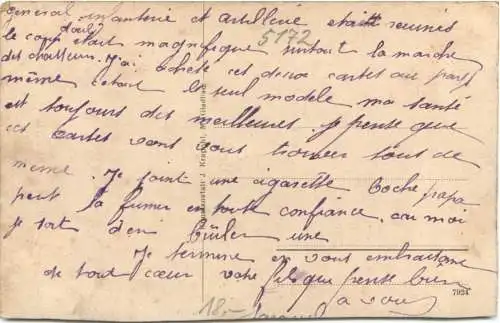 général infanterie et artillerie était réunis
le coup d'œil était magnifique surtout la marche
5172
des chasseurs. J'ai acheté ces deux cartes au pays
même cétait le seul modèle ma santé
est toujours des meilleures. je pense que
ces cartes vont vous trouver tous de
meme. Je joint une cigarette boche papa
peut la fumer en toute confiance car moi
je sort d'en brûler une
Je termine en vous embrassant
de tout cœur votre fils que pense bien
a vous
7924
18.-